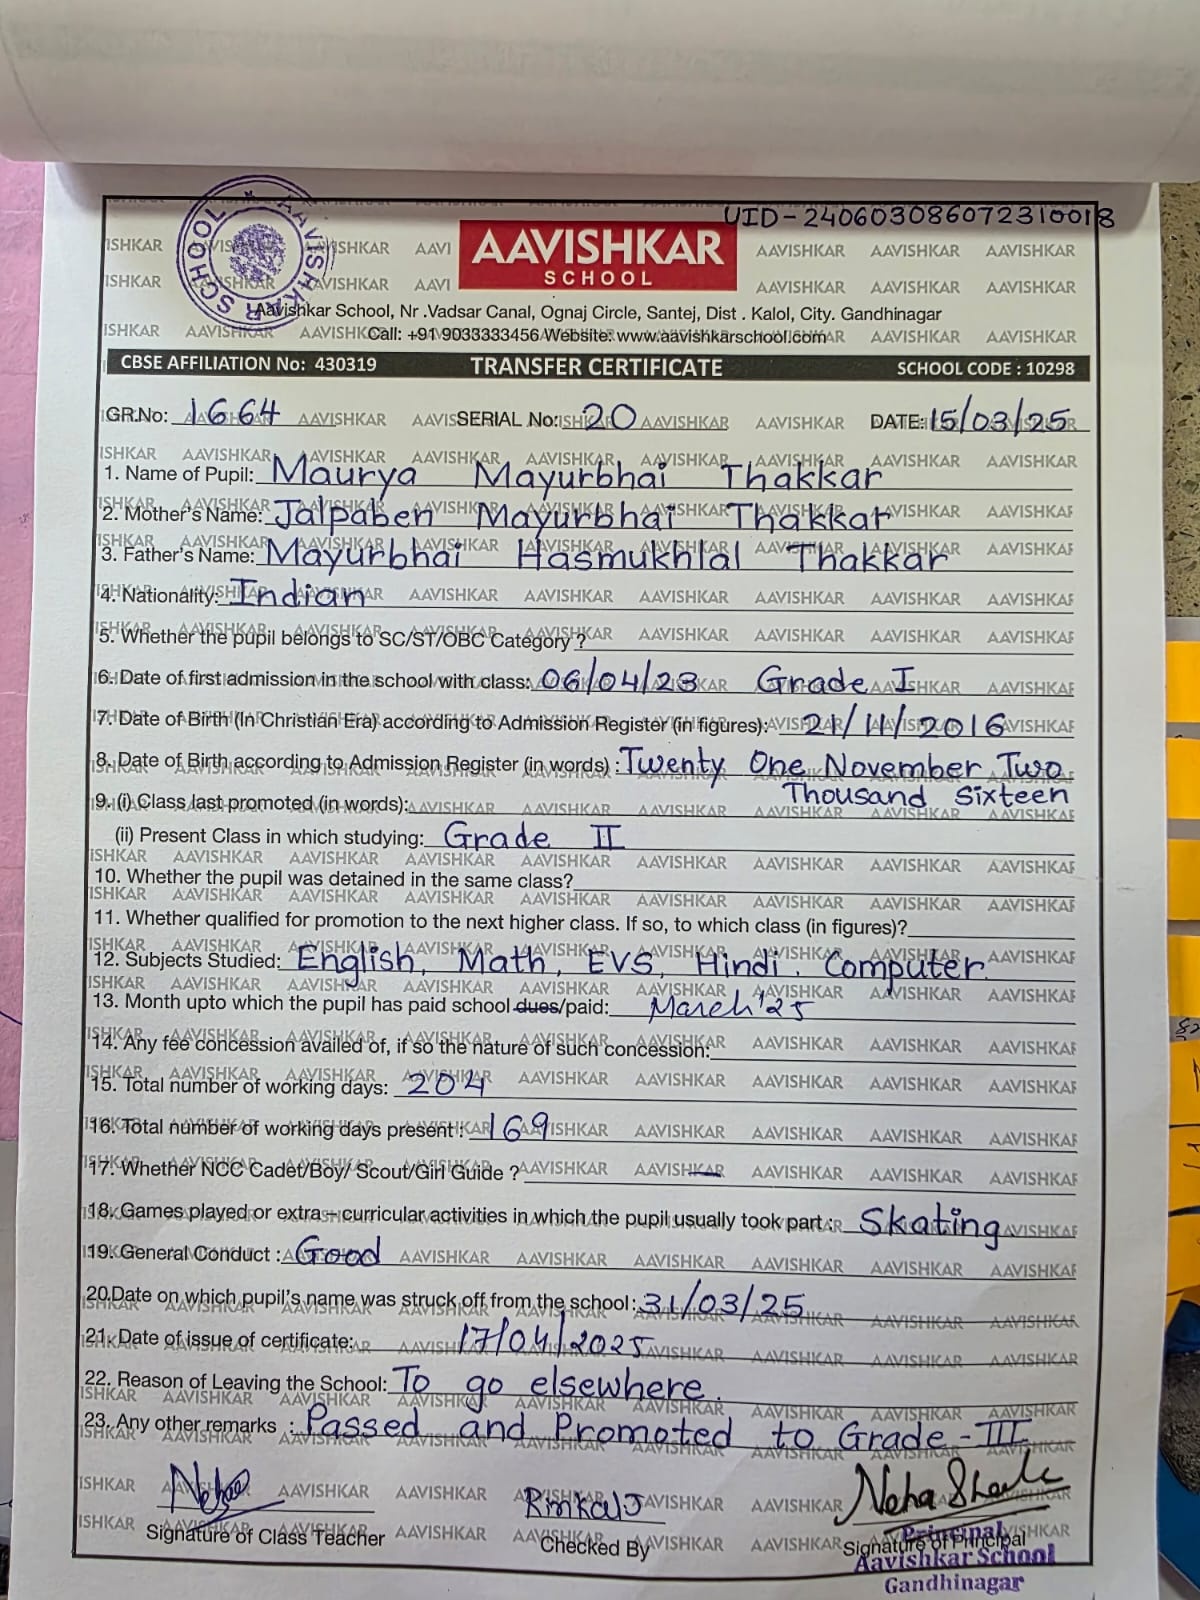 UID-2406030860723100​18
AAVISHKAR
SCHOOL
AAVISHKAR SCHOOL
Aavishkar School, Nr .Vadsar Canal, Ognaj Circle, Santej, Dist . Kalol, City. Gandhinagar
Call: +91 9033333456 Website: www.aavishkarschool.com
CBSE AFFILIATION No: 430319 TRANSFER CERTIFICATE SCHOOL CODE : 10298
GR.No: 1664 SERIAL No: 20 DATE: 15/03/25
1. Name of Pupil: Maurya Mayurbhai Thakkar
2. Mother's Name: Jalpaben Mayurbhai Thakkar
3. Father's Name: Mayurbhai Hasmukhlal Thakkar
4. Nationality: Indian
5. Whether the pupil belongs to SC/ST/OBC Category ?
6. Date of first admission in the school with class: 06/04/23 Grade I
7. Date of Birth (In Christian Era) according to Admission Register (in figures): 21/11/2016
8. Date of Birth according to Admission Register (in words) : Twenty One November Two
Thousand Sixteen
9. (i) Class last promoted (in words):
(ii) Present Class in which studying: Grade II
10. Whether the pupil was detained in the same class?
11. Whether qualified for promotion to the next higher class. If so, to which class (in figures)?
12. Subjects Studied: English, Math, EVS, Hindi. Computer
13. Month upto which the pupil has paid school dues/paid: March'25
14. Any fee concession availed of, if so the nature of such concession:
15. Total number of working days: 204
16. Total number of working days present : 169
17. Whether NCC Cadet/Boy/ Scout/Girl Guide ? —
18. Games played or extra – curricular activities in which the pupil usually took part : Skating
19. General Conduct : Good
20.Date on which pupil's name was struck off from the school: 31/03/25
21. Date of issue of certificate: 17/04/2025
22. Reason of Leaving the School: To go elsewhere.
23. Any other remarks : Passed and Promoted to Grade - III
Signature of Class Teacher Checked By Signature of Principal
Principal
Aavishkar School
Gandhinagar